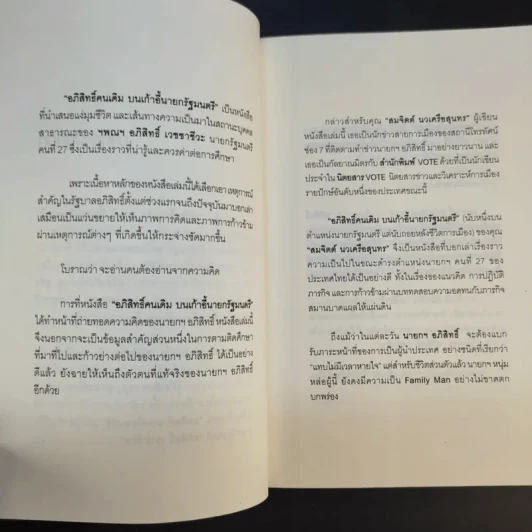 "อภิสิทธิ์คนเดิม บนเก้าอี้นายกรัฐมนตรี" เป็นหนังสือ
ที่นำเสนอแง่มุมชีวิต และเส้นทางความเป็นมาในสถานะบุคคล
สาธารณะของ ฯพณฯ อภิสิทธิ์ เวชชาชีวะ นายกรัฐมนตรี
คนที่ 27 ซึ่งเป็นเรื่องราวที่น่ารู้และควรค่าต่อการศึกษา
เพราะเนื้อหาหลักของหนังสือเล่มนี้ได้เลือกเอาเหตุการณ์
สำคัญในรัฐบาลอภิสิทธิ์ตั้งแต่ช่วงแรกจนถึงปัจจุบันมาบอกเล่า
เสมือนเป็นแว่นขยายให้เห็นภาพการคิดและภาพการก้าวข้าม
ผ่านเหตุการณ์ต่างๆ ที่เกิดขึ้นให้กระจ่างชัดมากขึ้น
โบราณว่า จะอ่านคนต้องอ่านจากความคิด
การที่หนังสือ "อภิสิทธิ์คนเดิม บนเก้าอี้นายกรัฐมนตรี"
ได้ทำหน้าที่ถ่ายทอดความคิดของนายกฯ อภิสิทธิ์ หนังสือเล่มนี้
จึงนอกจากจะเป็นข้อมูลสำคัญส่วนหนึ่งในการตามติดศึกษา
ที่มาที่ไปและก้าวย่างต่อไปของนายกฯ อภิสิทธิ์ ได้เป็นอย่าง
ดีแล้ว ยังฉายให้เห็นถึงตัวตนที่แท้จริงของนายกฯ อภิสิทธิ์
อีกด้วย
กล่าวสำหรับคุณ "สมจิตต์ นวเครือสุนทร" ผู้เขียน
หนังสือเล่มนี้ เธอเป็นนักข่าวสายการเมืองของสถานีโทรทัศน์
ช่อง 7 ที่ติดตามทำข่าวนายกฯ อภิสิทธิ์ มาอย่างยาวนาน และ
เธอเป็นกัลยาณมิตรกับ สำนักพิมพ์ VOTE ด้วยที่เป็นนักเขียน
ประจำใน นิตยสาร VOTE นิตยสารข่าวและวิเคราะห์การเมือง
รายปักษ์อันดับหนึ่งของประเทศขณะนี้
"อภิสิทธิ์คนเดิม บนเก้าอี้นายกรัฐมนตรี" (นับหนึ่งบน
ตำแหน่งนายกรัฐมนตรี แต่นับถอยหลังชีวิตการเมือง) ของคุณ
"สมจิตต์ นวเครือสุนทร" จึงเป็นหนังสือที่บอกเล่าเรื่องราว
ความเป็นไปในขณะดำรงตำแหน่งนายกฯ คนที่ 27 ของ
ประเทศไทยได้เป็นอย่างดี ทั้งในเรื่องของแนวคิด การปฏิบัติ
ภารกิจ และการก้าวข้ามผ่านบททดสอบความอดทนกับภารกิจ
สมานบาดแผลให้แผ่นดิน
ถึงแม้ว่าในแต่ละวัน นายกฯ อภิสิทธิ์ จะต้องแบก
รับภาระหน้าที่ของการเป็นผู้นำประเทศ อย่างชนิดที่เรียกว่า
"แทบไม่มีเวลาหายใจ" แต่สำหรับชีวิตส่วนตัวแล้ว นายกฯ หนุ่ม
หล่อผู้นี้ ยังคงมีความเป็น Family Man อย่างไม่ขาดตก
บกพร่อง